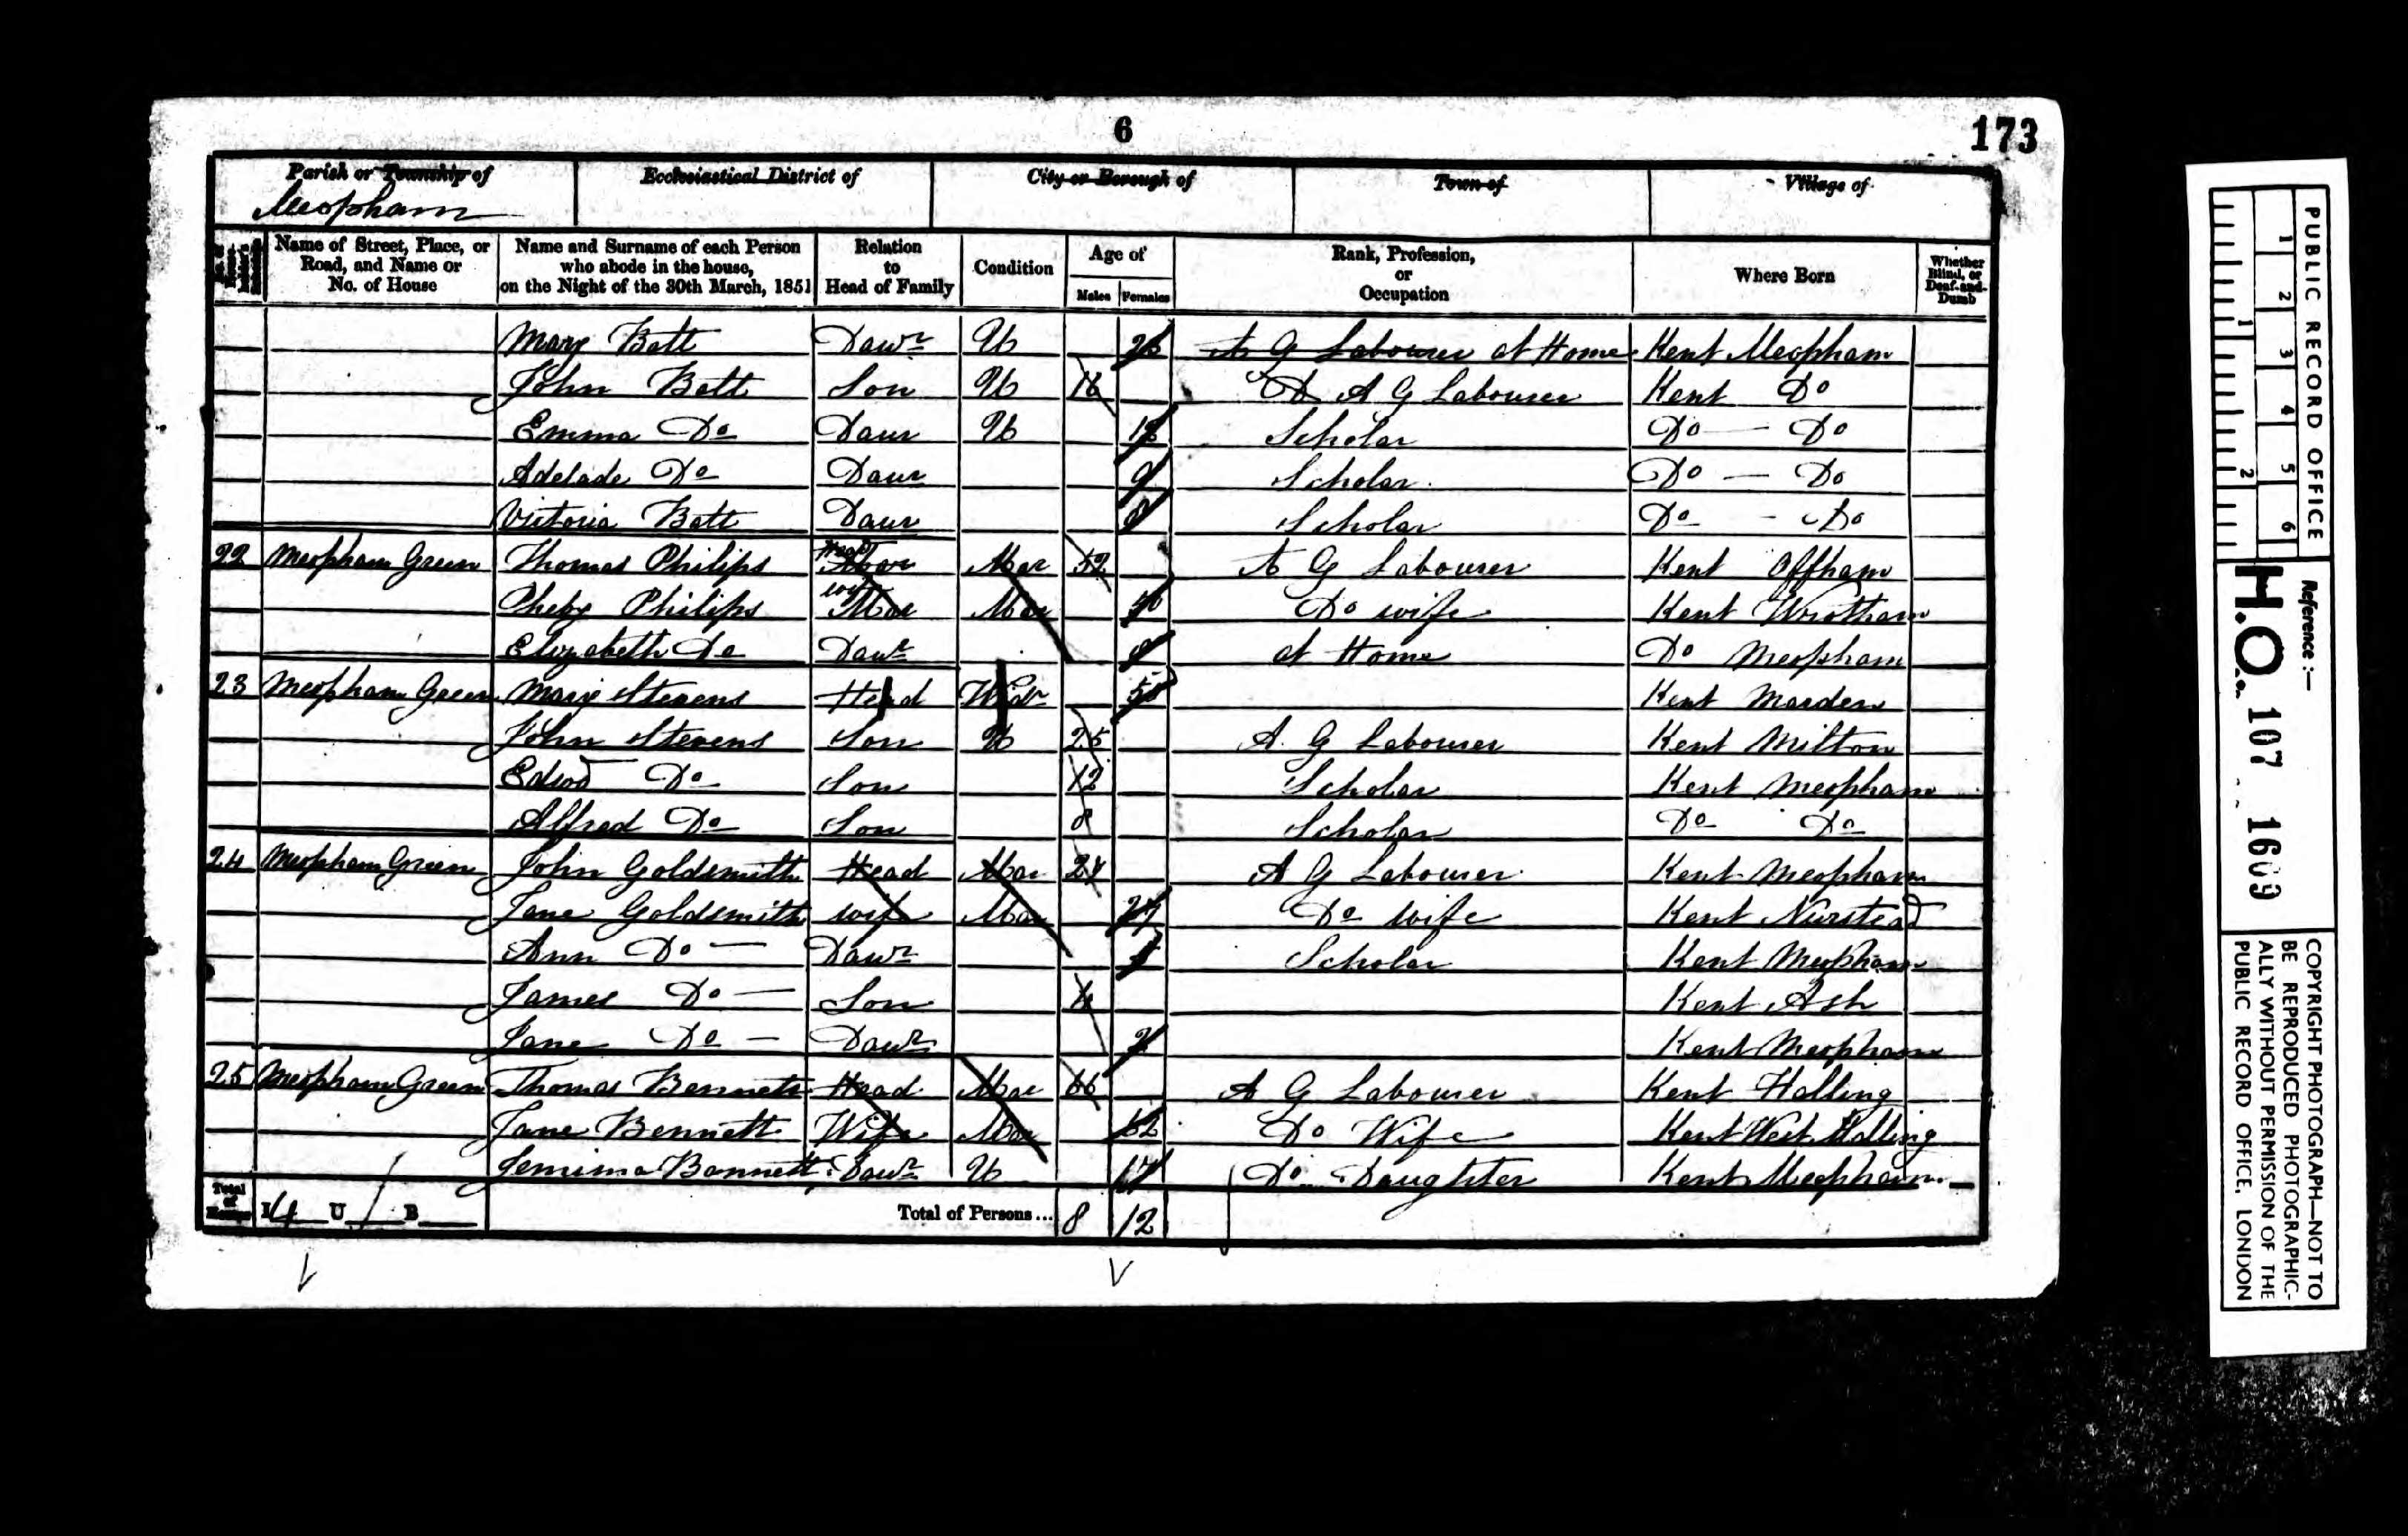 6
173
Parish or Township of
Ecclesiastical District of
City or Borough of
Town of
Village of
Meopham
Name of Street, Place, or Road, and Name or No. of House
Name and Surname of each Person who abode in the house, on the Night of the 30th March, 1851
Relation to Head of Family
Condition
Age of
Males
Females
Rank, Profession, or Occupation
Where Born
Whether Blind, or Deaf-and-Dumb
Mary Bett Dawr U A G Labourer at Home Kent Meopham
John Bett Son U 16 Do A G Labourer Kent Do
Emma Do Daur U Scholar Do — Do
Adelade Do Daur 9 Scholar Do — Do
Victoria Bett Daur 8 Scholar Do - Do
22 Meopham Green Thomas Philips Head Mar 52 A G Labourer Kent Offham
Pheby Philips wif Mar Do wife Kent Wrotham
Elizabeth Do Dawr at Home Do Meopham
23 Meopham Green Mary Stevens Head Widr Kent Marden
John Stevens Son U 25 A. G Labourer Kent Milton
Edwd Do Son 12 Scholar Kent Meopham
Alfred Do Son 8 Scholar Do Do
24 Meopham Green John Goldsmith Head Mar A G Labourer Kent Meopham
Jane Goldsmith wife Mar 27 Do wife Kent Nurstead
Ann Do — Dawr Scholar Kent Meopham
James Do — Son 4 Kent Ash
Jane Do — Dawr 2 Kent Meopham
25 Meopham Green Thomas Bennett Head Mar 66 A G Labourer Kent Halling
Jane Bennett Wife Mar 62 Do Wife Kent West Malling
Jemima Bannett Dawr U 17 Do Daughter Kent Meopham
Total of Houses I 4 U / B
Total of Persons... 8 12
PUBLIC RECORD OFFICE
1 2 3 4 5 6
1 2
Reference :-
H.O. 107 1609
COPYRIGHT PHOTOGRAPH—NOT TO
BE REPRODUCED PHOTOGRAPHIC-
ALLY WITHOUT PERMISSION OF THE
PUBLIC RECORD OFFICE, LONDON